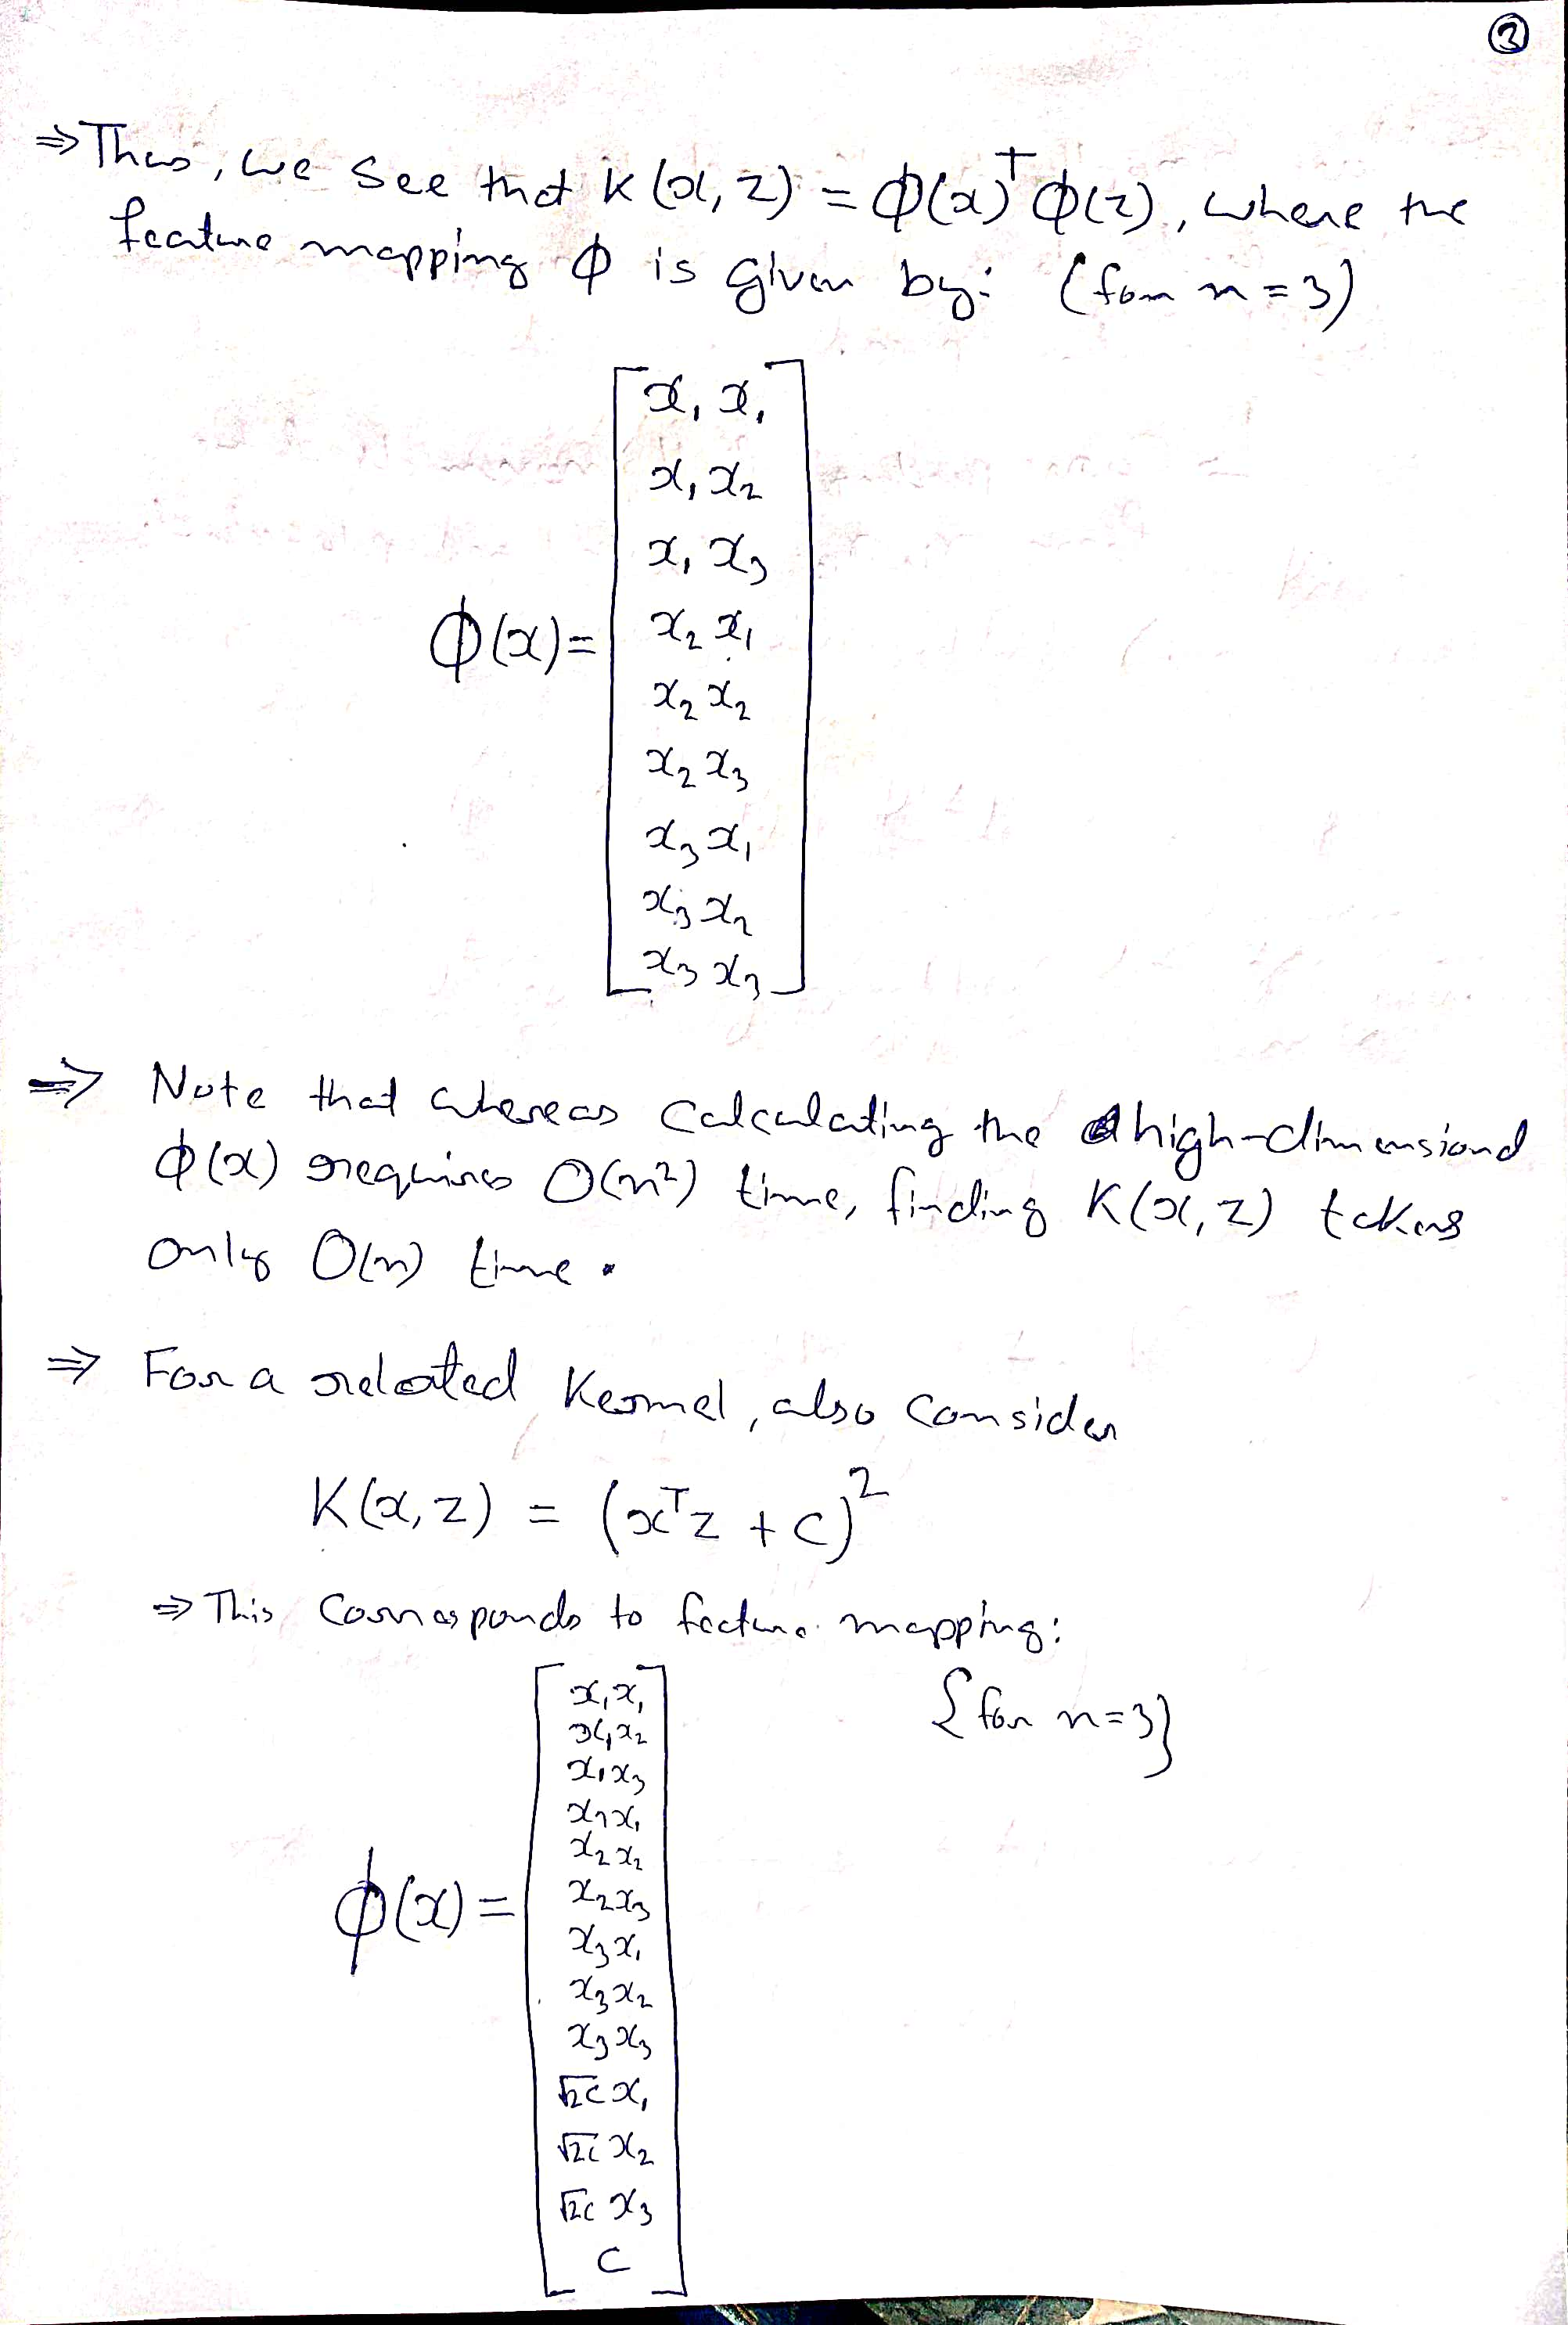 ③
⇒ Thus, we see that K(x, z) = φ(x)ᵀ φ(z), where the
feature mapping φ is given by: (for n = 3)
x₁ x₁
x₁ x₂
x₁ x₃
φ(x) = x₂ x₁
x₂ x₂
x₂ x₃
x₃ x₁
x₃ x₂
x₃ x₃
⇒ Note that whereas calculating the high-dimensional
φ(x) requires O(n²) time, finding K(x, z) takes
only O(n) time.
⇒ For a related Kernel, also consider
K(x, z) = (xᵀz + c)²
⇒ This corresponds to feature mapping:
{for n=3}
x₁x₁
x₁x₂
x₁x₃
x₂x₁
x₂x₂
φ(x) = x₂x₃
x₃x₁
x₃x₂
x₃x₃
√2c x₁
√2c x₂
√2c x₃
c